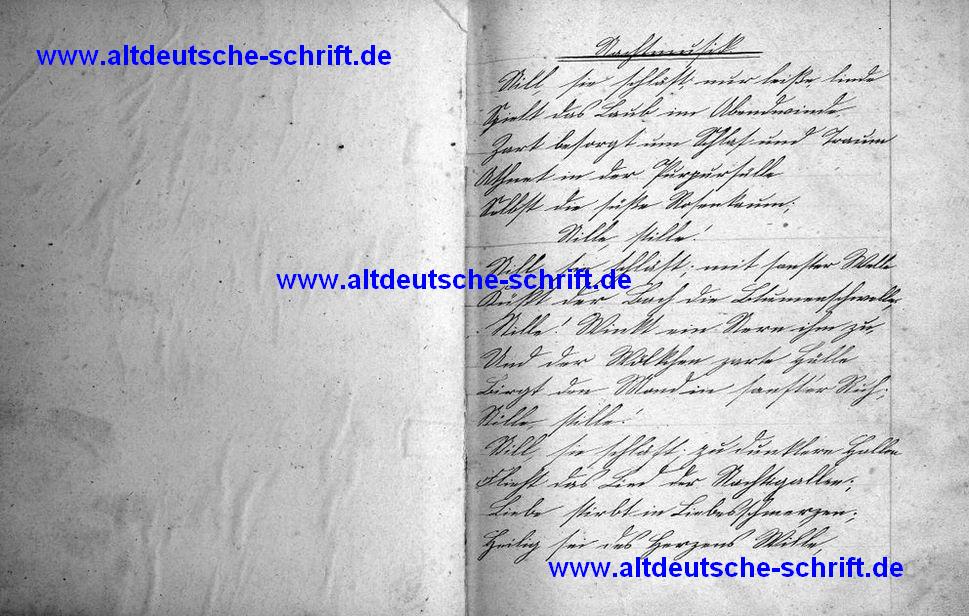 www.altdeutsche-schrift.de
Nachtmusik
Still sie schläft; nur leiße, linde
Spielt das Laub im Abendwinde
Zart besorgt um Schlaf und Traum
Athmet in der Purpurfülle
Selbst die süße Rosenkaum;
Stille, stille!
Still, sie schläft: mit sanfter Welle
www.altdeutsche-schrift.de
Küßt der Bach die Blumenschwelle,
Stille! Winkt ein Stern ihm zu
Und der Wölkchen zarte Hülle
Birgt den Mond in sanfter Ruh;
Stille, stille!
Still sie schläft: zu dunklern Hallen
Flieht das Lied der Nachtigallen;
Liebe stirbt in Liebesschmerzen;
Heilig sei des Herzens Wille,
www.altdeutsche-schrift.de